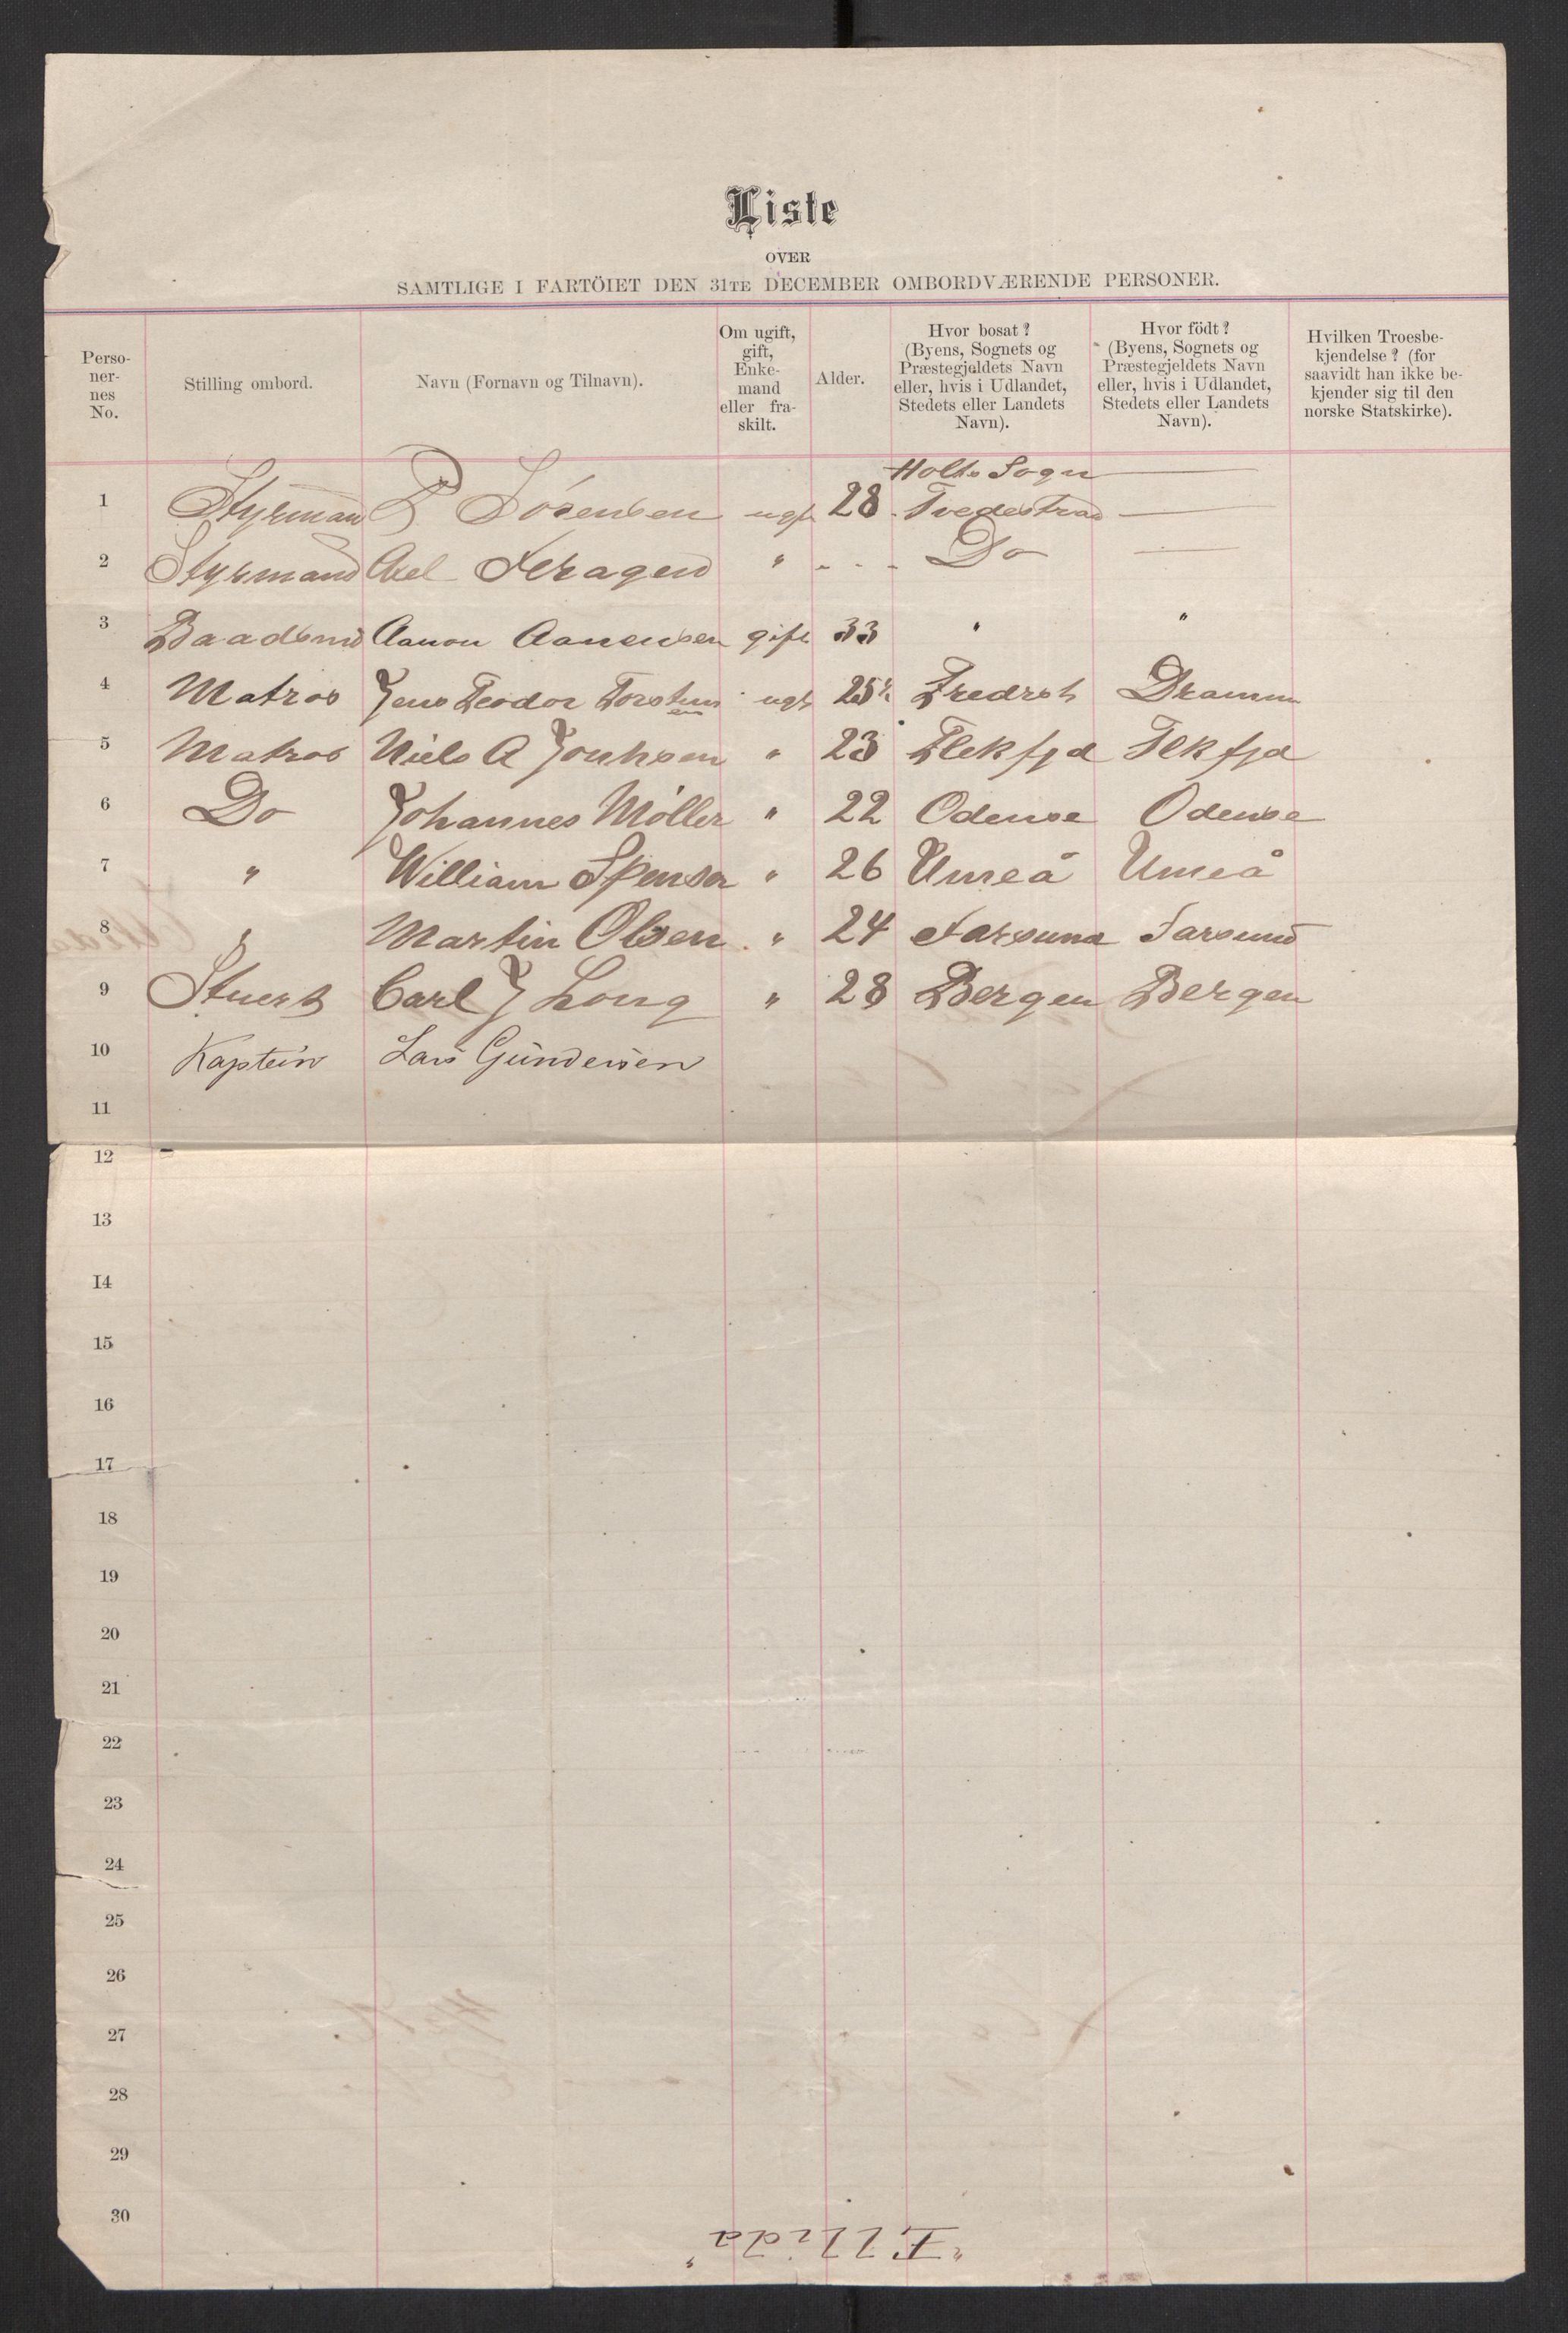 Liste
OVER
SAMTLIGE I FARTÖIET DEN 31TE DECEMBER OMBORDVÆRENDE PERSONER.
Perso-
ner-
nes
No.
Stilling ombord.
Navn (Fornavn og Tilnavn).
Om ugift,
gift,
Enke-
mand
eller fra-
skilt.
Alder.
Hvor bosat?
(Byens, Sognets og
Præstegjeldets Navn
eller, hvis i Udlandet,
Stedets eller Landets
Navn).
Hvor födt?
(Byens, Sognets og
Præstegjeldets Navn
eller, hvis i Udlandet,
Stedets eller Landets
Navn).
Hvilken Troesbe-
kjendelse? (for
saavidt han ikke be-
kjender sig til den
norske Statskirke).
Holts Sogn
1 Styrmand P Sörensen ugf 28 Tvedestrand
2 Styrmand Axel " Do
3 Baadsmd Aanon Aanensen gift 33 " "
4 Matros Jens Teodor Torstensen ugf 25½ Fredrsh Dramm
5 Matros Niels A Jouhsen " 23 Flekfjd Flkfjd
6 Do Johannes Möller " 22 Odense Odense
7 " William Spenser " 26 Umeå Umeå
8 " Martin Olsen " 24 Farsund Farsund
9 Stuert Carl J Long " 28 Bergen Bergen
10 Kaptein Lars Gundersen
11
12
13
14
15
16
17
18
19
20
21
22
23
24
25
26
27
28
29
30
"Ellida"